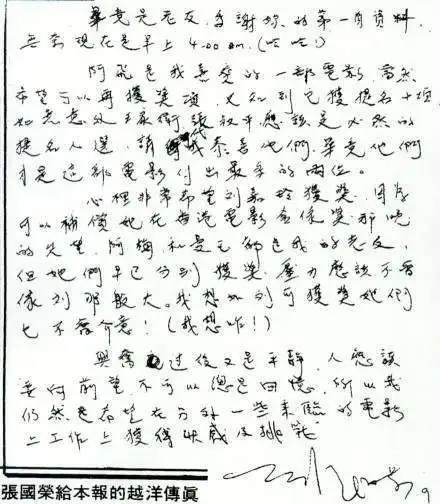 畢竟是老友,多謝妳的第一有資料,
無奈現在是早上 4:00 am.(哈哈)
阿飛是我喜愛的一部電影,當然
希望可以再獲獎項,又知到它獲提名十項
張叔平應該是必然的
提名人選,請 代我恭喜他們,畢竟他們
是這部電影付出最多的兩位。
心裡非常希望劉嘉玲獲獎,因為
可以補償她在香港電影金像獎那晚
的失望,阿梅和曼玉都是我的老友,
但她們早已分別獲獎,壓力應該不會
像列那般大。我想如列可獲獎她們
也不會介意!(我想咋!)
興奮過後又是平靜,人應該
要向前望,不可以總是回憶,所以我
仍然是希望在另外一些來臨的電影
上工作上獲得快感及挑戰
張國榮給本報的越洋傳眞